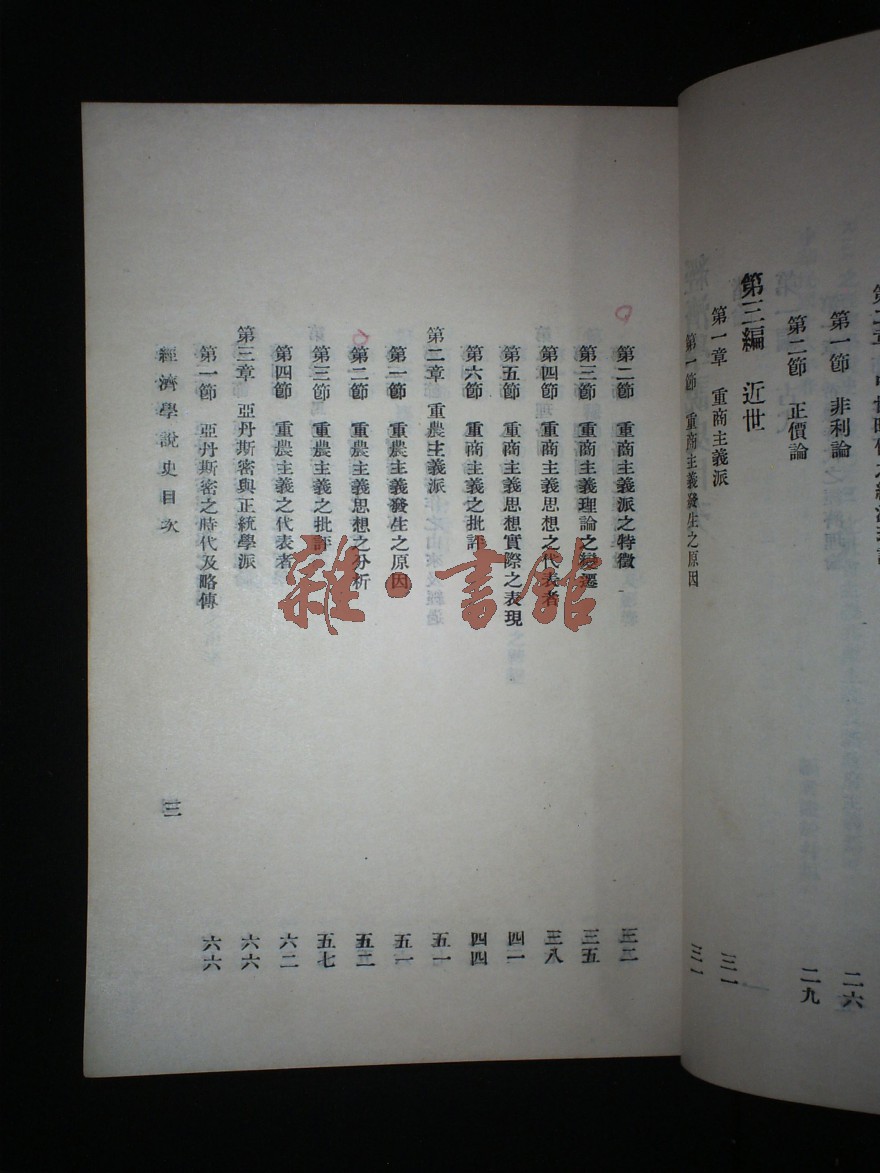 第一節　非利論　二六
第二節　正價論　二九
第三編　近世
第一章　重商主義派　三一
第一節　重商主義發生之原因　三一
第二節　重商主義派之特徵　三二
第三節　重商主義理論之變遷　三五
第四節　重商主義思想之代表者　三八
第五節　重商主義思想實際之表現　四一
第六節　重商主義之批評　四四
第二章　重農主義派　五一
第一節　重農主義發生之原因　五一
第二節　重農主義思想之分析　五二
第三節　重農主義之批評　五七
第四節　重農主義之代表者　六二
第三章　亞丹斯密與正統學派　六六
第一節　亞丹斯密之時代及略傳　六六
經濟學說史目次　三
雜·書館